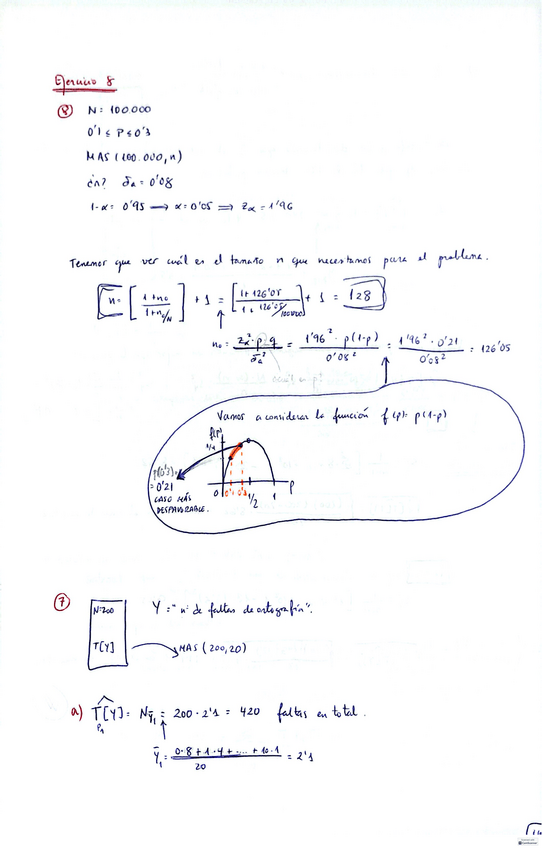 Ejercicio 8
⑧ N = 100.000
0'1 ≤ P ≤ 0'3
MAS (100.000, n)
¿n? δa = 0'08
1-α = 0'95 → α = 0'05 ⇒ zα = 1'96
Tenemos que ver cuál es el tamaño n que necesitamos para el problema.
n = [1+n₀ / 1+n₀/N] + 1 = [1+126'05 / 1+126'05/100000] + 1 = 128
n₀ = zα²·p·q / δa² = 1'96²·p(1-p) / 0'08² = 1'96²·0'21 / 0'08² = 126'05
Vamos a considerar la función f(p) = p(1-p)
f(p)
1/4
f(0'3) =
= 0'21
CASO MÁS
DESFAVORABLE.
0 0'1 0'3 1/2 1 P
⑦ N=200 Y = "nº de faltas de ortografía".
T[Y] → MAS (200,20)
a) T̂[Y] = Nȳ₁ = 200 · 2'1 = 420 faltas en total.
P₁
ȳ₁ = 0·8+1·4+....+10·1 / 20 = 2'1